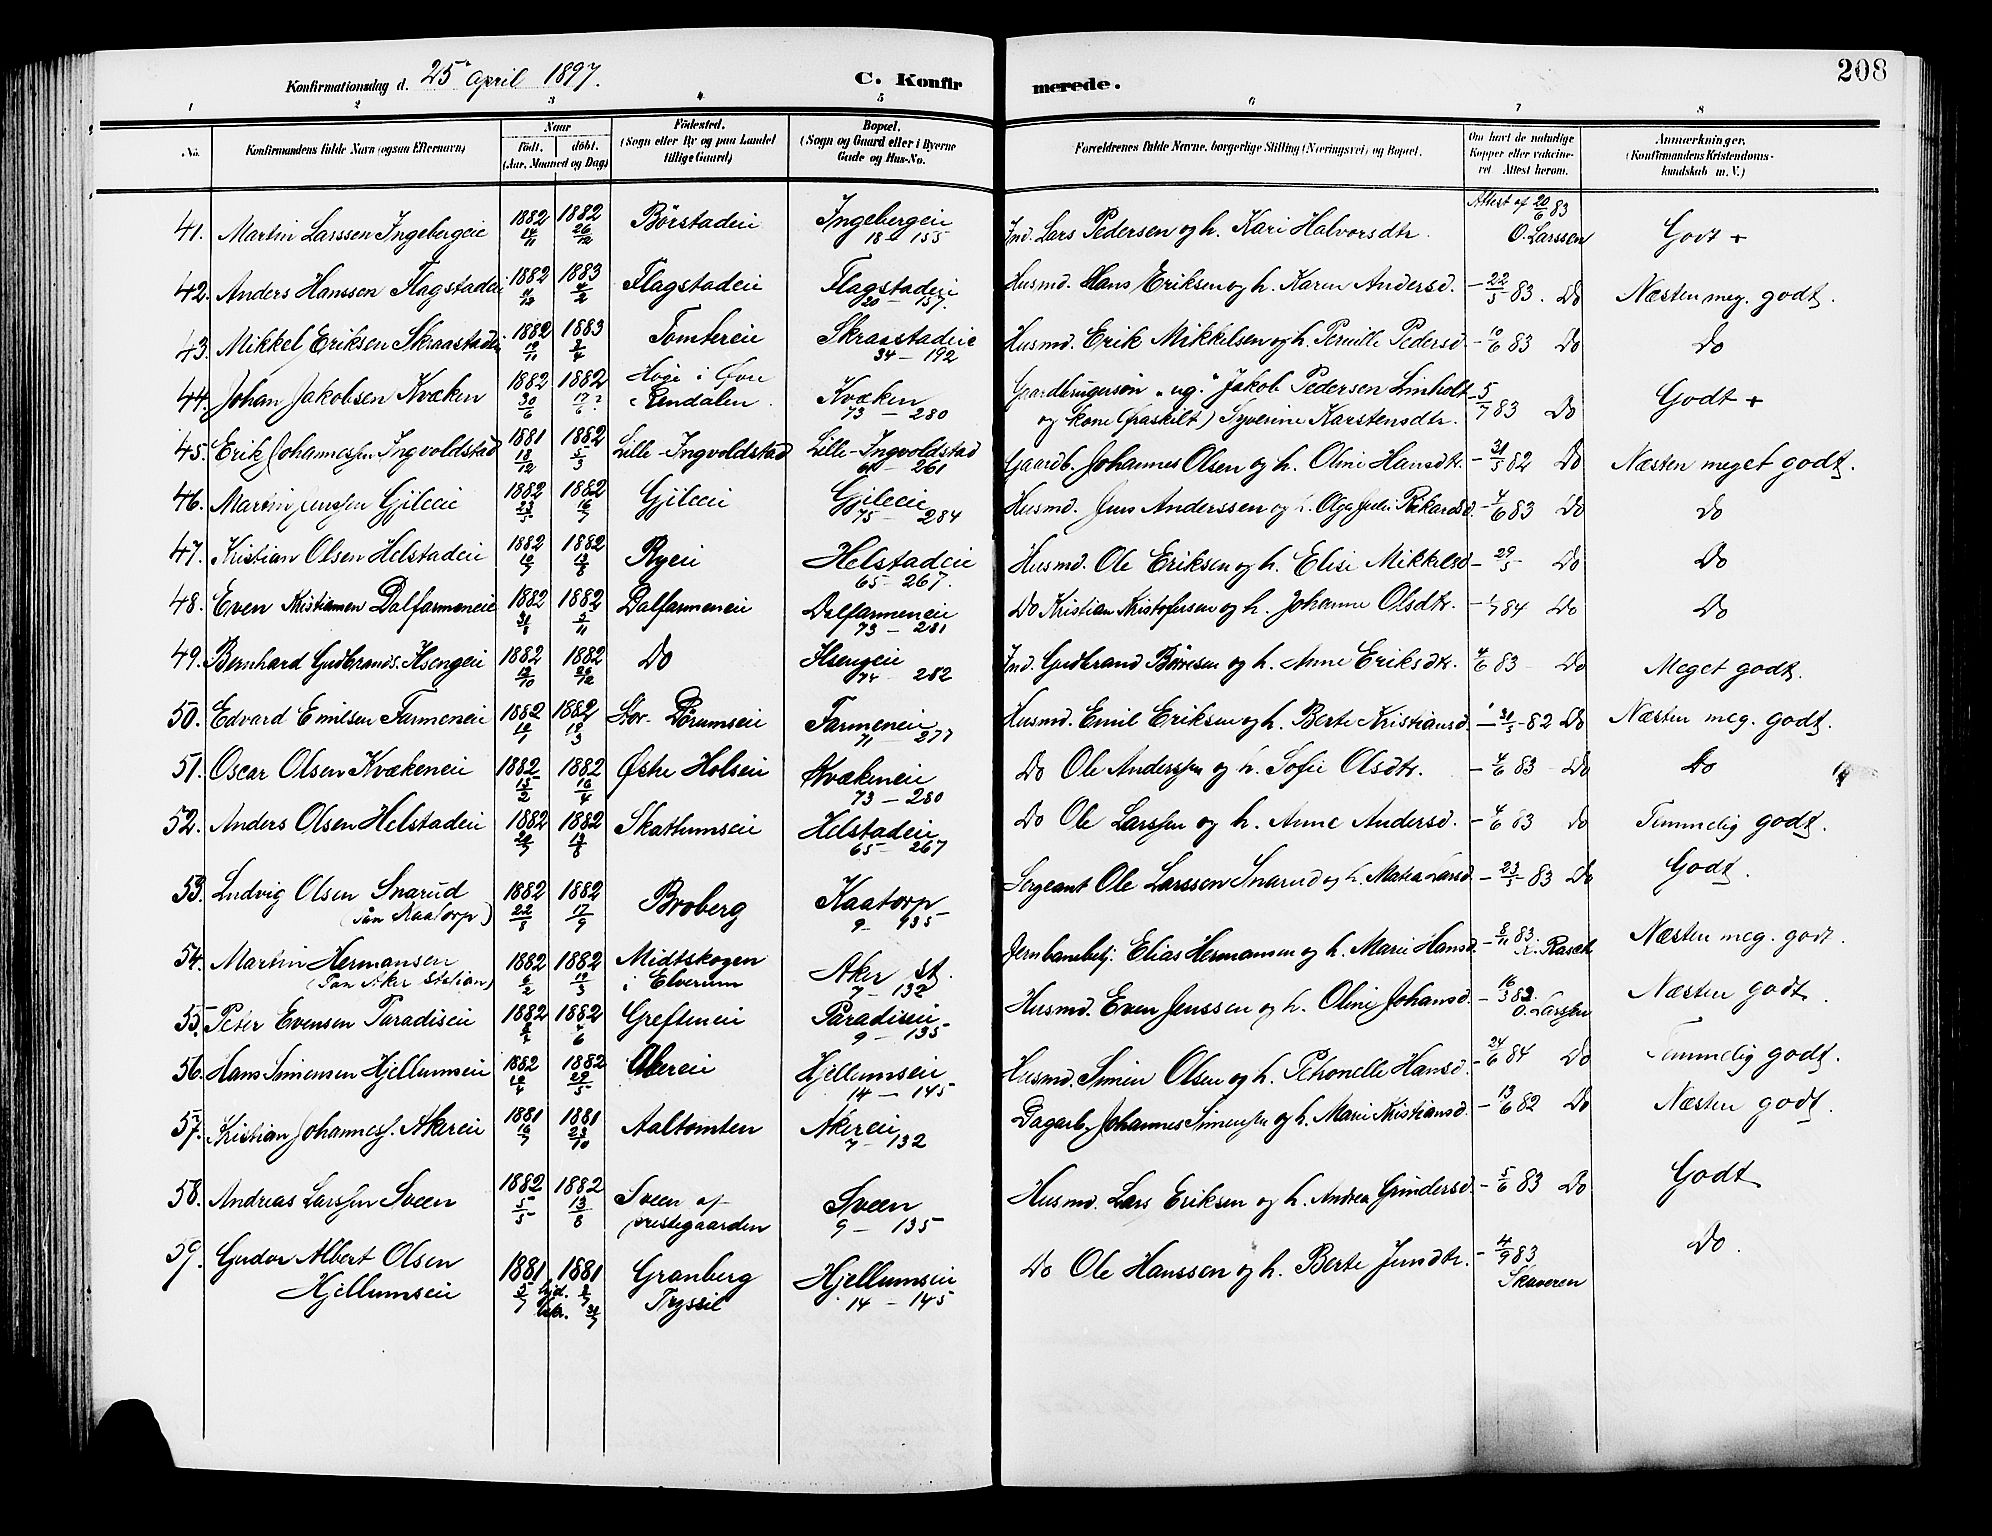 208
Konfirmationsdag d. 25 April 1897. C. Konfirmerede.
1 2 3 4 5 6 7 8
No. Konfirmandens fulde Navn (ogsaa Efternavn) Naar Födt. döbt. (Aar, Maaned og Dag) Födested. (Sogn eller By og paa Landet tillige Gaard) Bopæl. (Sogn og Gaard eller i Byerne Gade og Hus-No. Forældrenes fulde Navne, borgerlige Stilling (Næringsvei) og Bopæl. Om havt de naturlige Kopper eller vakcineret. Attest herom. Anmærkninger. (Konfirmandens Kristendomskundskab m. V.)
41. Martin Larssen Ingebergeie 1882 14/11 1882 26/12 Børstadeie Ingebergeie 18 - 155 Ind. Lars Pedersen og h. Kari Halvorsdtr. Attest af 20/6 83 O. Larssen Godt +
42. Anders Hanssen Flagstadeie 1882 1883 4/2 Flagstadeie Flagstadeie 20 - 157. Husmd. Hans Eriksen og h. Karen Andersd. - 22/5 83. Do Næsten meg. godt.
43. Mikkel Eriksen Skraastadeie 1882 1883 2/4 Tomtereie Skraastadeie 34 - 192 Husmd. Erik Mikkelsen og h. Pernille Pedersd. - 10/6 83 Do Do
44. Johan Jakobsen Kvæken 1882 30/6 1882 17/6? Høge i Øvre Rendalen Kvæken 73 - 280 Gaardbrugersøn "ug." Jakob Pedersen Limholt
og Kone (fraskilt) Syverine Karstensdtr. - 5/7 83 Do Godt +
45. Erik Johannessen Ingvoldstad 1881 18/12 1882 5/3 Lille-Ingvoldstad Lille-Ingvoldstad 61 - 261 Gaardb. Johannes Olsen og h. Olini Hansdtr. - 31/5 82 Do Næsten meget godt.
46. Martin Jenssen Gjileie 1882 23/5 1882 16/7 Gjileie Gjileie 75 - 284 Husmd. Jens Anderssen og h. Olga Julie Rikardsd. - 4/6 83 Do Do
47. Kristian Olsen Helstadeie 1882 10/7 1882 13/8 Ryeie Helstadeie 65 - 267. Husmd. Ole Eriksen og h. Elise Mikkelsd - 29/5 - Do Do
48. Even Kristiansen Dalfarmeneie 1882 31/8 1882 5/11 Dalfarmeneie Dalfarmeneie 73 - 281 Do Kristian Kristofersen og h. Johanne Olsdtr. - 1/7 84 Do Do
49. Bernhard Gudbrands. Ilsengeie 1882 12/10 1882 26/12 Do Ilsengeie 74 - 282 Ind. Gudbrand Børresen og h. Anne Eriksdtr. 4/6 83 - Do Meget godt.
50. Edvard Emilsen Farmeneie 1882 1882 19/3 Stor-Dørumseie Farmeneie 71 - 277 Husmd. Emil Eriksen og h. Berte Kristiansd. - 31/5 - 82 Do Næsten meg. godt.
51. Oscar Olsen Kvækeneie 1882 15/2 1882 16/4 Østre Holseie Kvækeneie 73 - 280 Do Ole Anderssen og h. Sofie Olsdtr. - 4/6 83 - Do Do
52. Anders Olsen Helstadeie 1882 1882 13/8 Skattumseie Helstadeie 65 - 267 Do Ole Larssen og h. Anne Andersd. - 4/6 83 Do Temmelig godt.
53. Ludvig Olsen Snarud
(paa Kaatorp) 1882 22/8 1882 17/9 Broberg Kaatorp 9 - 135 Sergeant Ole Larssen Snarud og h. Matea Larsd - 23/5 - 83 Do Godt.
54. Martin Hermansen
(paa Aker Station) 1882 6/2 1882 19/3 Midtskogen i Elverum Aker st. 7 - 132 Jernbanebetj. Elias Hermansen og h. Marie Hansd. - 8/11 83. Rasch Næsten meg. godt.
55. Peter Evensen Paradiseie 1882 1882 4/6 Grefteneie Paradiseie 9 - 135 Husmd. Even Jenssen og h. Olini Johansd. - 16/3 83. O. Larssen Næsten godt.
56. Hans Simensen Hjellumseie 1882 1882 29/5 Akereie Hjellumseie 14 - 145 Husmd. Simen Olsen og h. Petronelle Hansd. - 24/6 84 Do Temmelig godt.
57. Kristian Johanness. Akereie 1881 16/7 1881 23/10 Aaltomten Akereie 7 - 132 Dagarb. Johannes Simensen og h. Marie Kristiansd. - 13/6 82 Do Næsten godt.
58. Andreas Larssen Sveen 1882 5/5 1882 13/8 Sveen af Prestegaarden Sveen 9 - 135 Husmd. Lars Eriksen og h. Andrea Gundersd - 5/6 83 Do Godt
59. Gudor Albert Olsen
Hjellumseie 1881 5/7 1881 hjd. 8/7 bekr. 31/7 Granberg Trysil Hjellumseie 14 - 145 Do Ole Hanssen og h. Berte Jundtr. - 4/9 83 Skaveren Do.